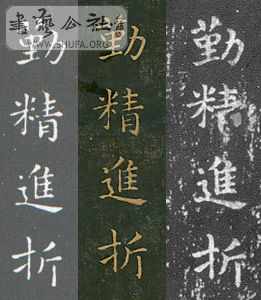 書藝公社
WWW.SHUFA.ORG
勤精進折
勤精進折
勤精進折